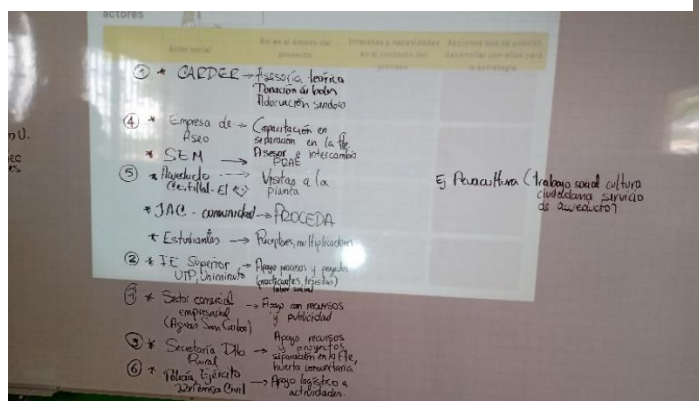 actores
Actor social
Rol en el ámbito del proyecto
Intereses y necesidades en el contexto del proceso
Acciones que se pueden desarrollar con ellos para la estrategia
① * CARDER → Asesoría teórica
Donación árboles
Adecuación sendero
④ * Empresa de Aseo → Capacitación en
separación en la fte,
* SEM → Asesor e intercambio
PRAE
⑤ * Acueducto → Visitas a la
planta
* JAC - comunidad → PROCEDA
* Estudiantes → Receptores, multiplicadores
② * IE Superior → Apoyo procesos y proyectos
UTP, Uniminuto (practicantes, tesistas)
labor social
* Sector comercial
empresarial → Apoyo con recursos
y publicidad
(Aguas San Carlos)
* Secretaría Dllo
Rural → Apoyo recursos
y proyectos
separación en la fte,
huerta comunitaria
⑥ * Policía, Ejército
Defensa Civil → Apoyo logístico a
actividades.
Ej (trabajo social cultura
ciudadana servicio
de acueducto)